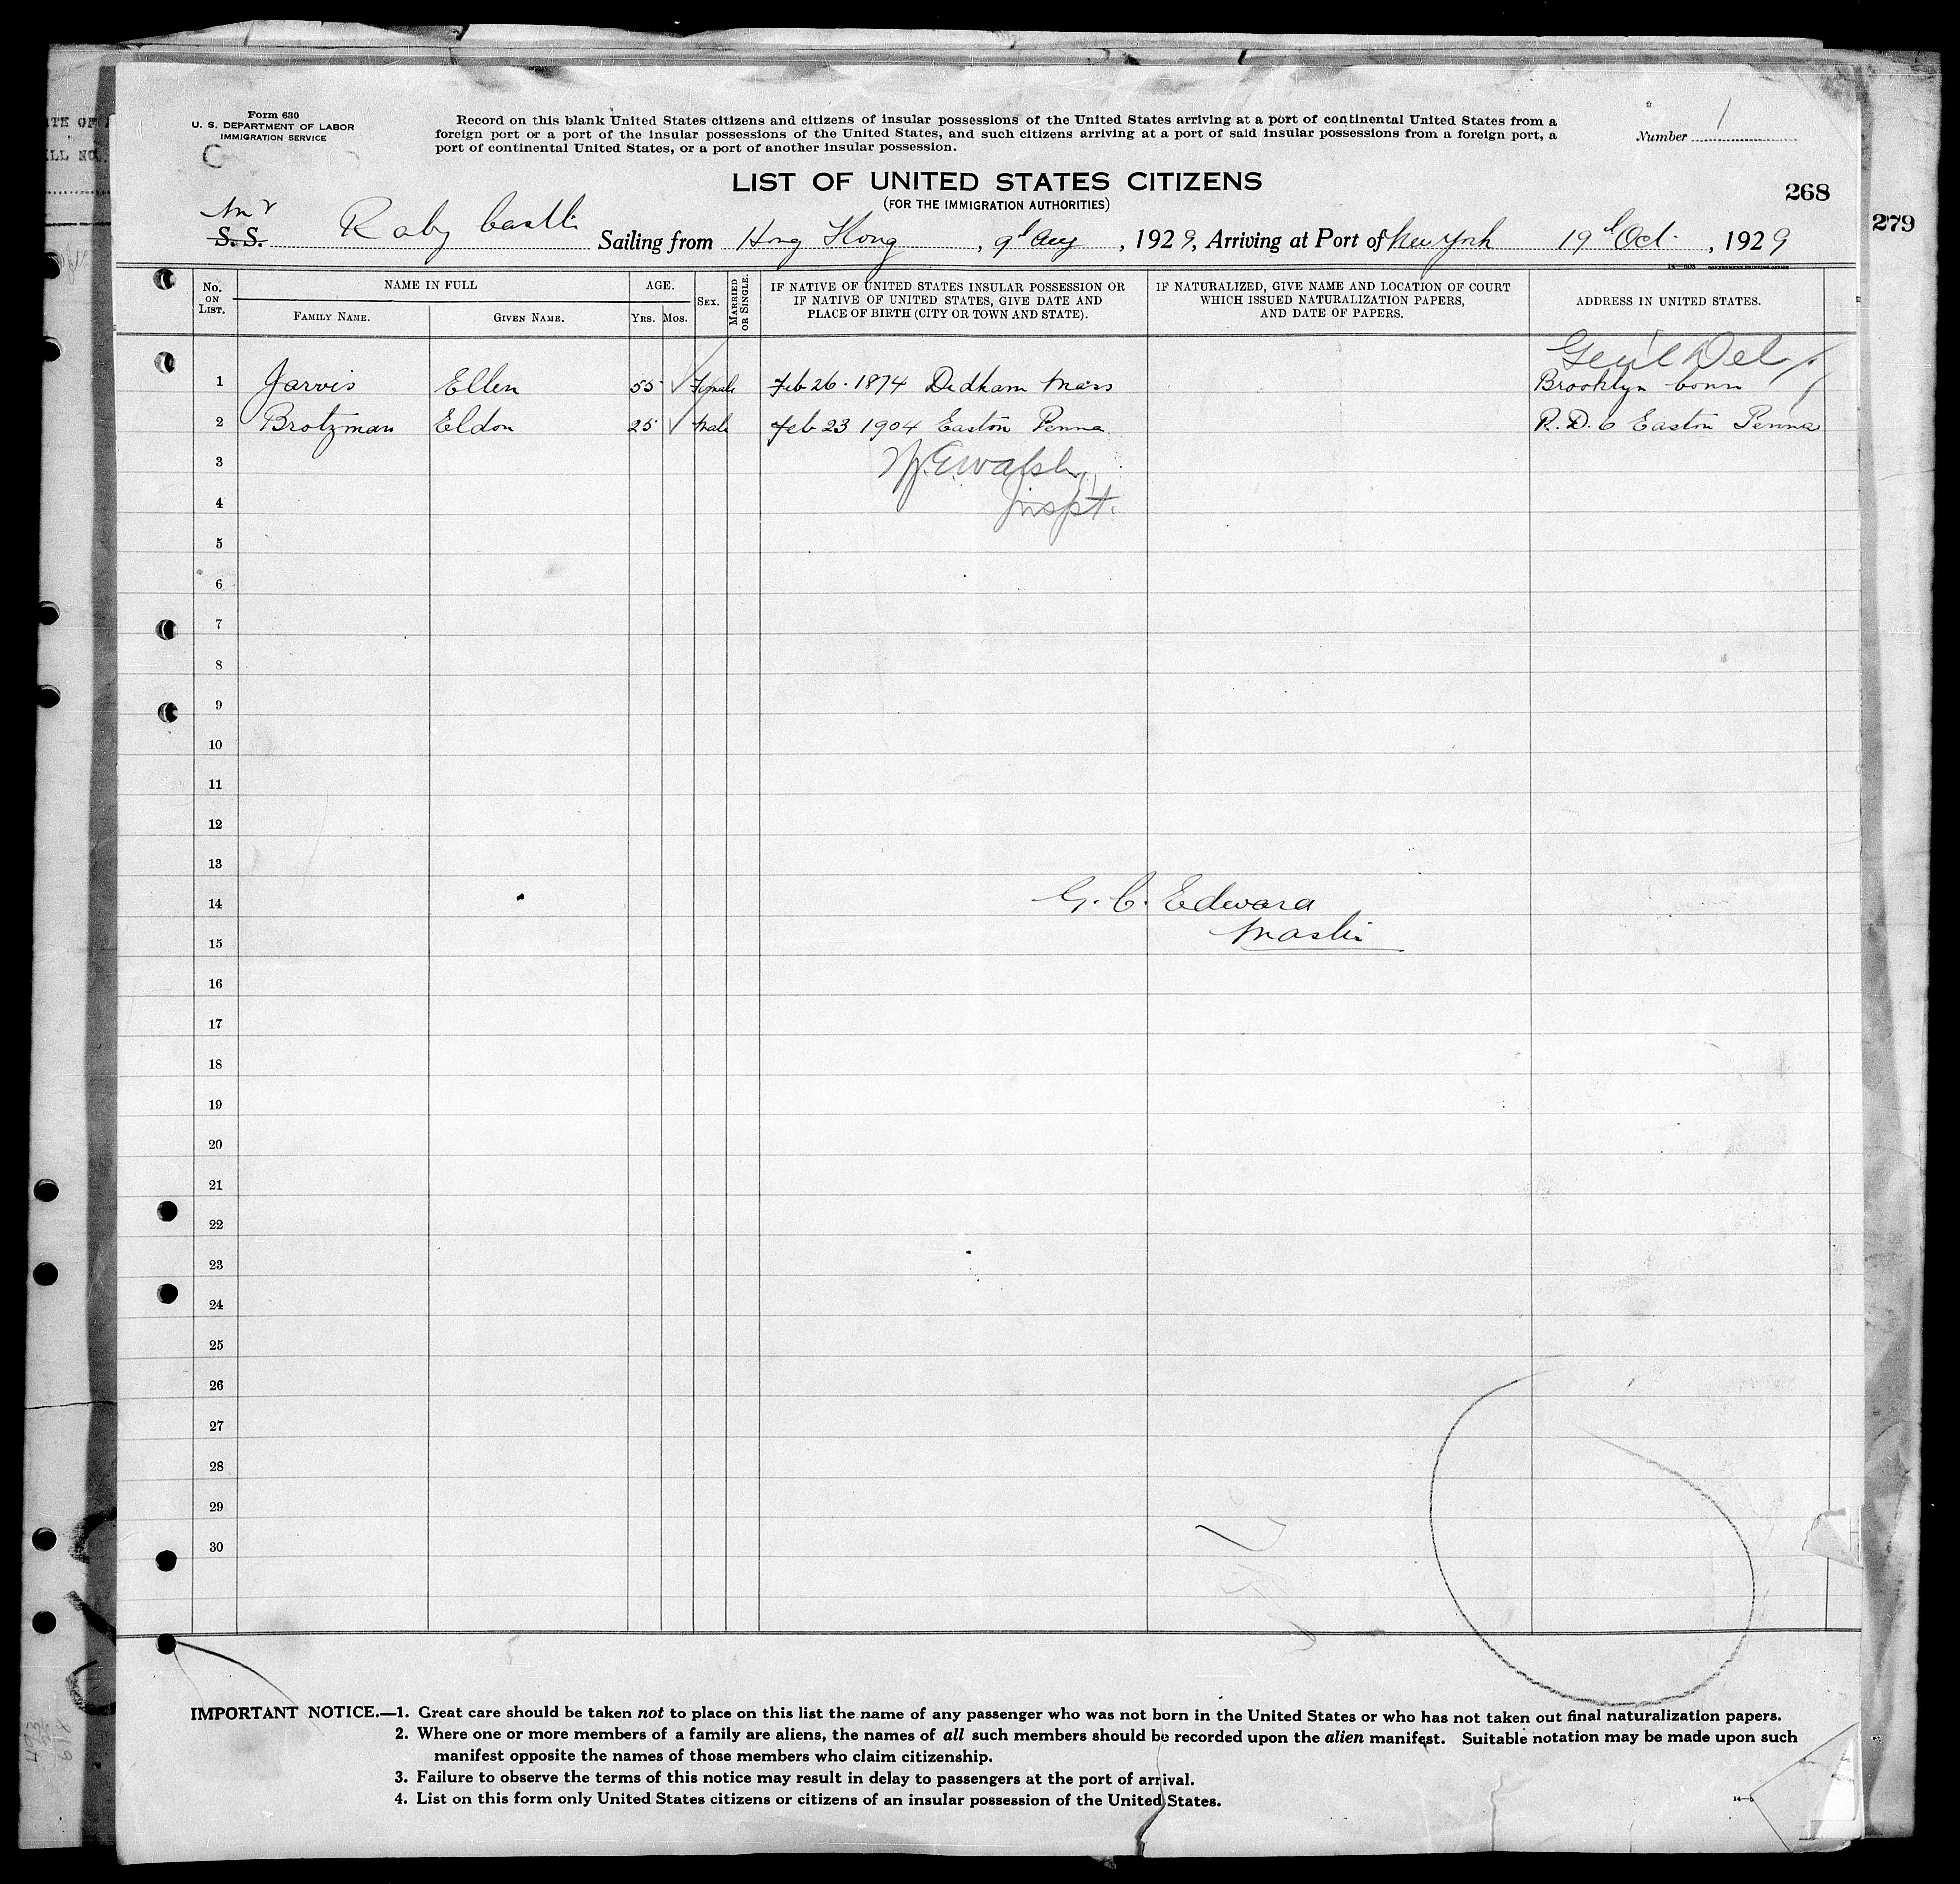 Form 630
U. S. DEPARTMENT OF LABOR
IMMIGRATION SERVICE
C
Record on this blank United States citizens and citizens of insular possessions of the United States arriving at a port of continental United States from a
foreign port or a port of the insular possessions of the United States, and such citizens arriving at a port of said insular possessions from a foreign port, a
port of continental United States, or a port of another insular possession.
Number 1
LIST OF UNITED STATES CITIZENS
(FOR THE IMMIGRATION AUTHORITIES)
268
279
S.S. Raby Castle Sailing from Hong Kong, 9th Aug, 1929, Arriving at Port of New York 19th Oct., 1929
No. ON LIST. NAME IN FULL AGE. SEX. MARRIED OR SINGLE. IF NATIVE OF UNITED STATES INSULAR POSSESSION OR IF NATIVE OF UNITED STATES, GIVE DATE AND PLACE OF BIRTH (CITY OR TOWN AND STATE). IF NATURALIZED, GIVE NAME AND LOCATION OF COURT WHICH ISSUED NATURALIZATION PAPERS, AND DATE OF PAPERS. ADDRESS IN UNITED STATES.
FAMILY NAME. GIVEN NAME. YRS. MOS.
Gen'l Del
1 Jarvis Ellen 55 ✓ Female Feb 26. 1874 Dedham Mass Brooklyn Conn
2 Brotzman Eldon 25 ✓ Male Feb 23 1904 Easton Penna R.D. 6 Easton Penna
3 Walsh
4 Inspt.
5
6
7
8
9
10
11
12
13
14 G. C. Edward
15 Master
16
17
18
19
20
21
22
23
24
25
26
27
28
29
30
IMPORTANT NOTICE.—1. Great care should be taken not to place on this list the name of any passenger who was not born in the United States or who has not taken out final naturalization papers.
2. Where one or more members of a family are aliens, the names of all such members should be recorded upon the alien manifest. Suitable notation may be made upon such
manifest opposite the names of those members who claim citizenship.
3. Failure to observe the terms of this notice may result in delay to passengers at the port of arrival.
4. List on this form only United States citizens or citizens of an insular possession of the United States.